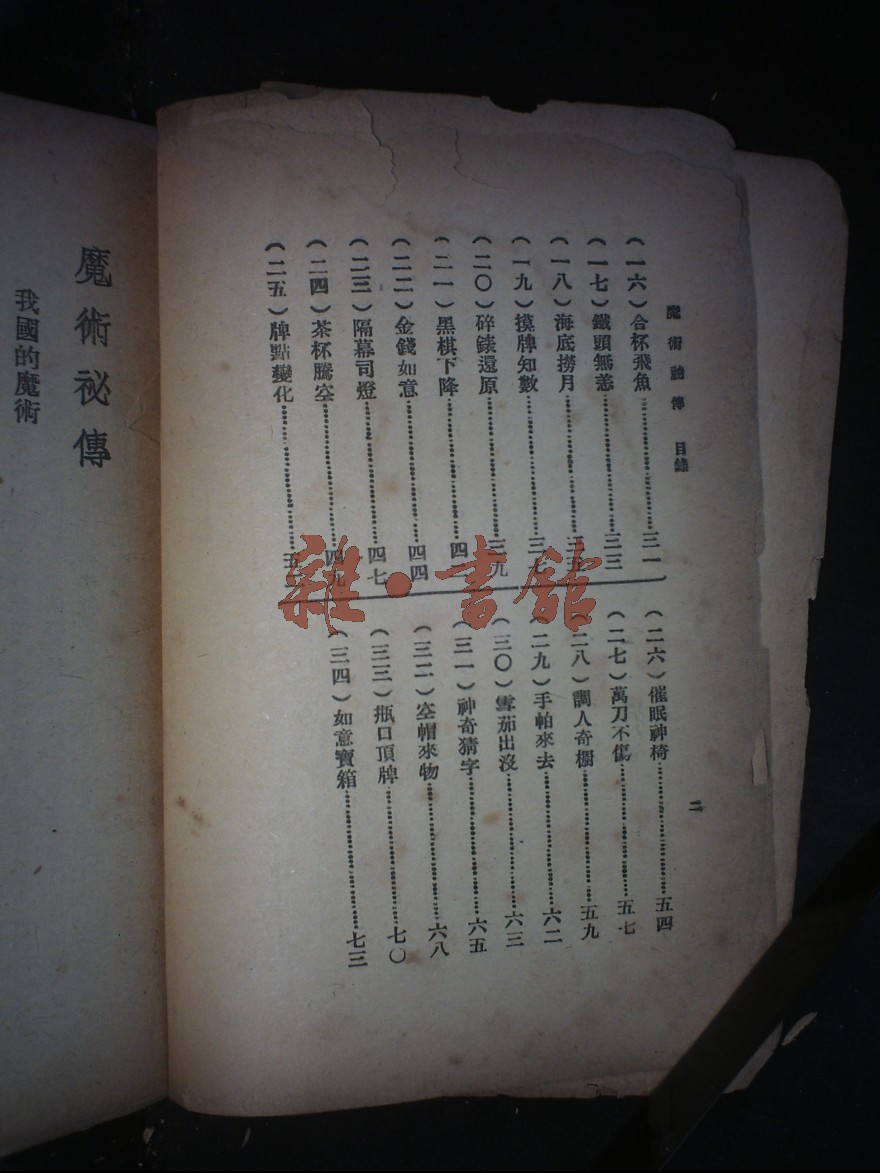 魔術祕傳 目錄
(一六)合杯飛魚……三一
(一七)鐵頭無恙……三三
(一八)海底撈月……三五
(一九)摸牌知數……三七
(二〇)碎錶還原……三九
(二一)黑棋下降……四
(二二)金錢如意……四四
(二三)隔幕司燈……四七
(二四)茶杯騰空……四九
(二五)牌點變化……五
(二六)催眠神椅……五四
(二七)萬刀不傷……五七
(二八)調人奇櫥……五九
(二九)手帕來去……六二
(三〇)雪茄出沒……六三
(三一)神奇猜字……六五
(三二)空帽來物……六八
(三三)瓶口頂牌……七〇
(三四)如意寶箱……七三
二
魔術祕傳
我國的魔術
雜·書館